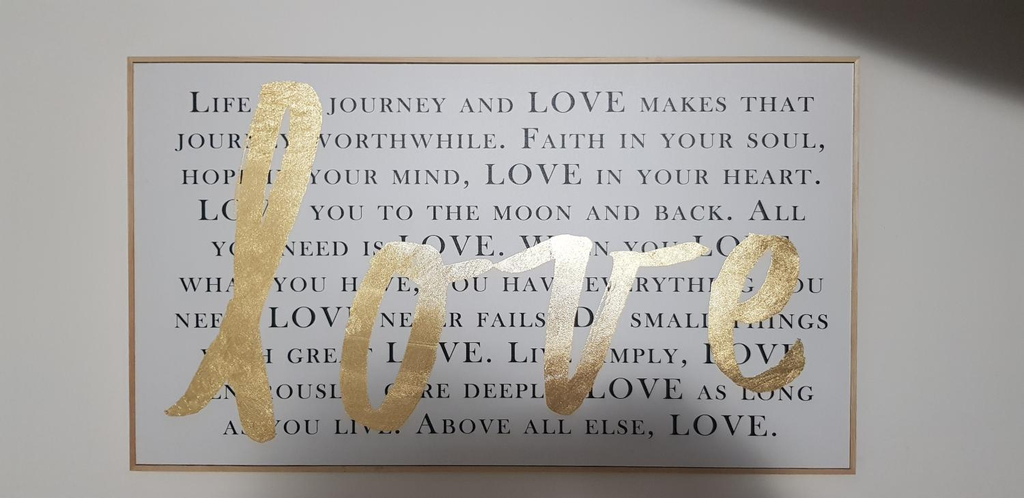 LIFE JOURNEY AND LOVE MAKES THAT
JOURNEY WORTHWHILE. FAITH IN YOUR SOUL,
HOPE IN YOUR MIND, LOVE IN YOUR HEART.
LOVE YOU TO THE MOON AND BACK. ALL
YOU NEED IS LOVE. WHEN YOU LOVE
WHAT YOU HAVE, YOU HAVE EVERYTHING YOU
NEED. LOVE NEVER FAILS. DO SMALL THINGS
WITH GREAT LOVE. LIVE SIMPLY, LOVE
GENEROUSLY, CARE DEEPLY, LOVE AS LONG
AS YOU LIVE. ABOVE ALL ELSE, LOVE.
love